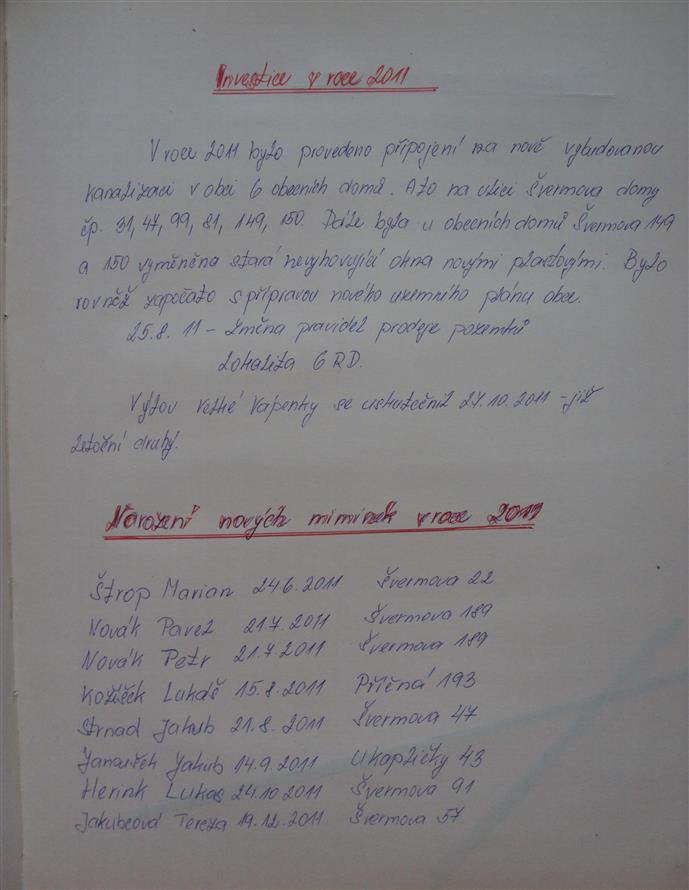 Investice v roce 2011
V roce 2011 bylo provedeno připojení na nově vybudovanou
kanalizaci v obci 6 obecních domů. A to na ulici Švermova domy
čp. 31, 47, 99, 81, 149, 150. Dále byla u obecních domů Švermova 149
a 150 vyměněna stará nevyhovující okna novými plastovými. Bylo
rovněž započato s přípravou nového územního plánu obce.
25.8. 11 - Změna pravidel prodeje pozemků
Lokalita 6 RD.
Výlov Velké Vápenky se uskutečnil 27.10.2011 - již
letošní druhý.
Narození nových miminek v roce 2011
Štrop Marian 24.6.2011 Švermova 22
Novák Pavel 21.7.2011 Švermova 189
Novák Petr 21.7.2011 Švermova 189
Kožíšek Lukáš 15.8.2011 Příčná 193
Strnad Jakub 21.8.2011 Švermova 47
Janoušek Jakub 14.9.2011 U kapličky 43
Herink Lukas 24.10 2011 Švermova 91
Jakubcová Tereza 19.12.2011 Švermova 57